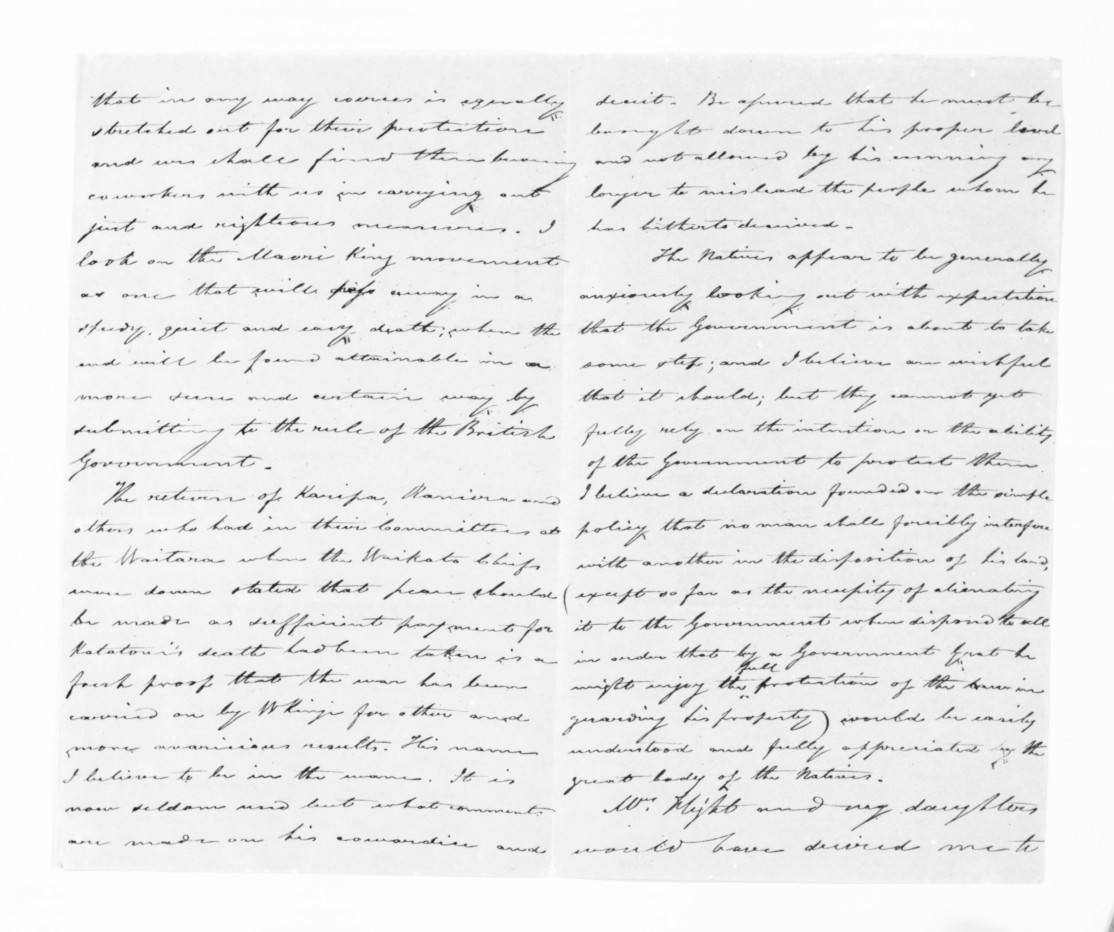 that in any way coerces is equally
stretched out for their protection
and we shall find them becoming
coworkers with us in carrying out
just and righteous measures. I
look on the Maori King movement
as one that will pass away in a
steady, quiet and easy death; when the
end will be found attainable in a
more sure and certain way by
submitting to the rule of the British
Government.
The return of Karipa, Raniera and
others who had in their Committees at
the Waitara when the Waikato Chiefs
were down stated that peace should
be made as sufficient payment for
Katatori's death had been taken is a
fresh proof that the war has been
carried on by WKingi for other and
more avaricious results. His name
I believe to be in the wane. It is
now seldom used but what comments
are made on his cowardice and
deceit. Be assured that he must be
brought down to his proper level
and not allowed by his cunning any
longer to mislead the people whom he
has hitherto deceived.
The Natives appear to be generally
anxiously looking out with expectation
that the Government is about to take
some step; and I believe are wishful
that it should; but they cannot yet
fully rely on the intention or the ability
of the Government to protect them.
I believe a declaration founded on the simple
policy that no man shall forcibly interfere
with another in the disposition of his land,
(except so far as the necessity of alienating
it to the Government when disposed to sell
in order that by a Government Grant he
might enjoy the full protection of the law in
guarding his property) would be easily
understood and fully appreciated by the
great body of the Natives.
Mrs. Flight and my daughters
would have desired me to